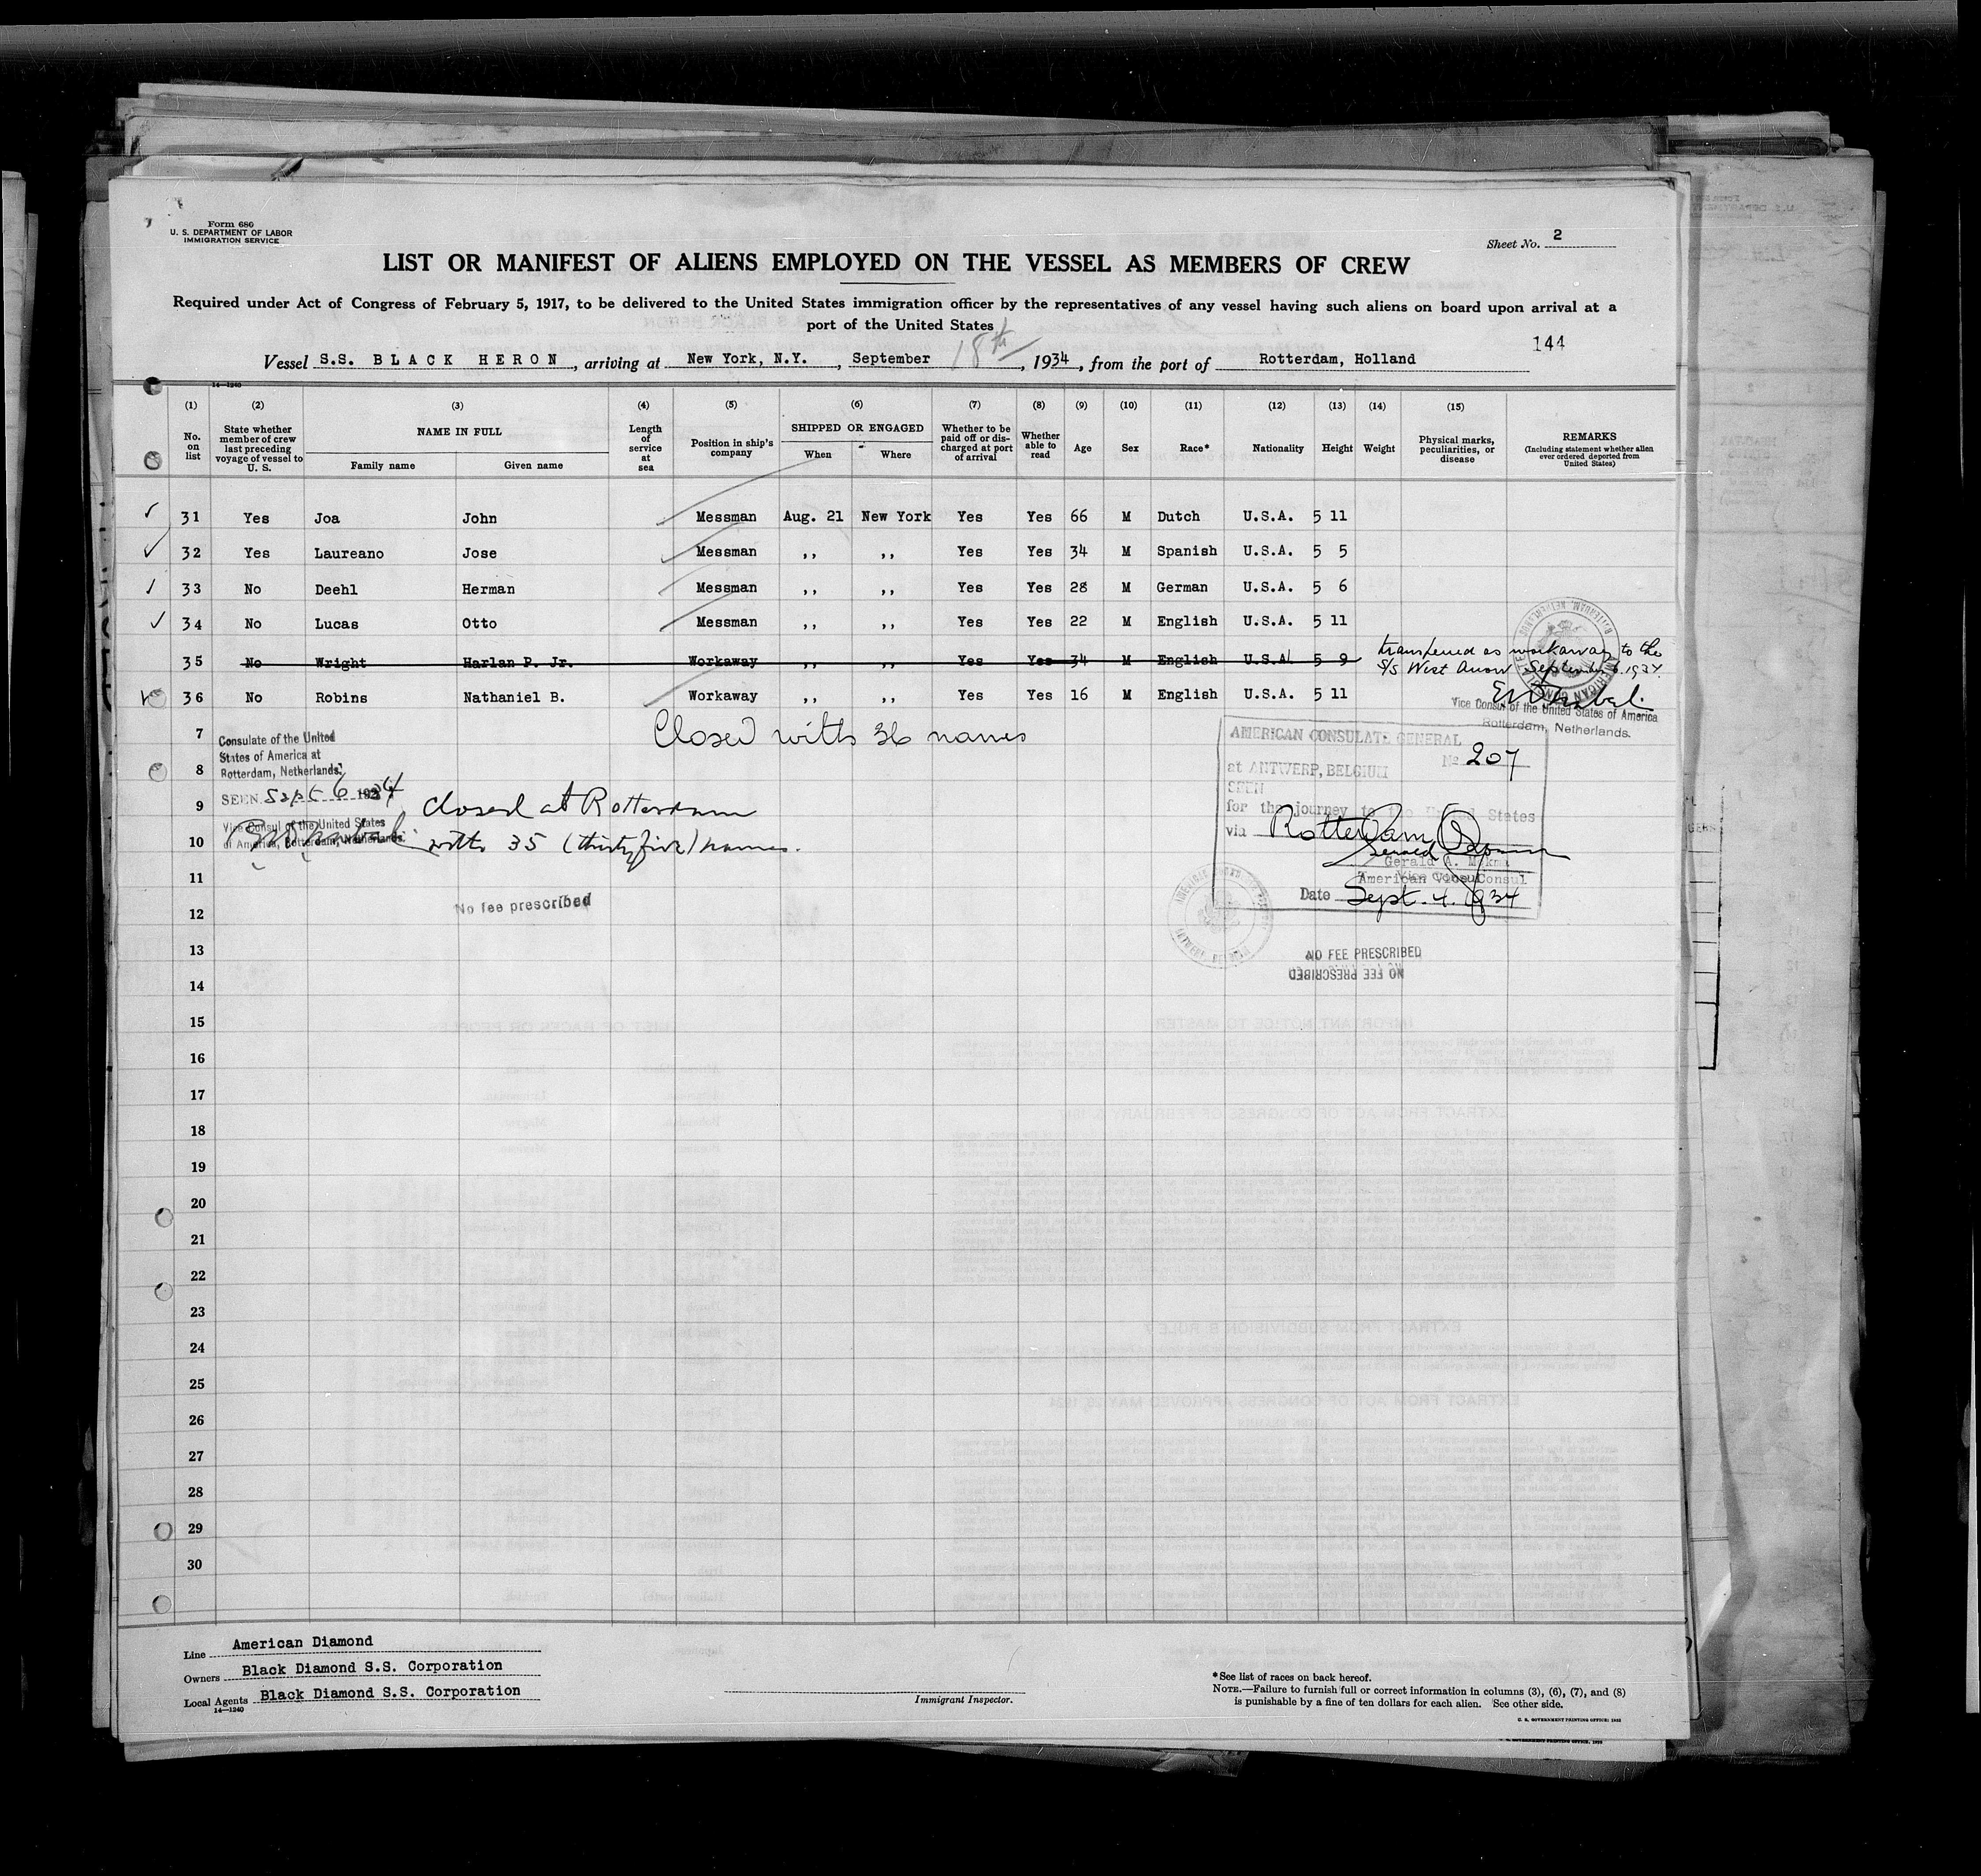 Form 680
U. S. DEPARTMENT OF LABOR
IMMIGRATION SERVICE
Sheet No. 2
LIST OR MANIFEST OF ALIENS EMPLOYED ON THE VESSEL AS MEMBERS OF CREW
Required under Act of Congress of February 5, 1917, to be delivered to the United States immigration officer by the representatives of any vessel having such aliens on board upon arrival at a
port of the United States
144
Vessel S.S. BLACK HERON, arriving at New York, N.Y., September 18th, 1934, from the port of Rotterdam, Holland
14—1240
(1) (2) (3) (4) (5) (6) (7) (8) (9) (10) (11) (12) (13) (14) (15)
No. on list
State whether member of crew last preceding voyage of vessel to U. S.
NAME IN FULL
Family name
Given name
Length of service at sea
Position in ship's company
SHIPPED OR ENGAGED
When
Where
Whether to be paid off or discharged at port of arrival
Whether able to read
Age
Sex
Race*
Nationality
Height
Weight
Physical marks, peculiarities, or disease
REMARKS
(Including statement whether alien ever ordered deported from United States)
31 Yes Joa John Messman Aug. 21 New York Yes Yes 66 M Dutch U.S.A. 5 11
32 Yes Laureano Jose Messman ,, ,, Yes Yes 34 M Spanish U.S.A. 5 5
33 No Deehl Herman Messman ,, ,, Yes Yes 28 M German U.S.A. 5 6
34 No Lucas Otto Messman ,, ,, Yes Yes 22 M English U.S.A. 5 11
35 No Wright Harlan P. Jr. Workaway ,, ,, Yes Yes 34 M English U.S.A. 5 9 transferred as workaway to the
S/S West Arrow September 6, 1934.
36 No Robins Nathaniel B. Workaway ,, ,, Yes Yes 16 M English U.S.A. 5 11
Vice Consul of the United States of America
Rotterdam, Netherlands.
7
Closed with 36 names
Consulate of the United
States of America at
Rotterdam, Netherlands.
SEEN Sept 6 1934
Vice Consul of the United States
of America, Rotterdam, Netherlands.
Closed at Rotterdam
with 35 (thirty five) names.
No fee prescribed
AMERICAN CONSULATE GENERAL
No 207
at ANTWERP, BELGIUM
SEEN
for the journey to the United States
via Rotterdam
Gerald A.
American Vice Consul
Date Sept. 4. 1934
NO FEE PRESCRIBED
NO FEE PRESCRIBED
8
9
10
11
12
13
14
15
16
17
18
19
20
21
22
23
24
25
26
27
28
29
30
Line American Diamond
Owners Black Diamond S.S. Corporation
Local Agents Black Diamond S.S. Corporation
14—1240
Immigrant Inspector.
*See list of races on back hereof.
NOTE.—Failure to furnish full or correct information in columns (3), (6), (7), and (8)
is punishable by a fine of ten dollars for each alien. See other side.
U. S. GOVERNMENT PRINTING OFFICE: 1932